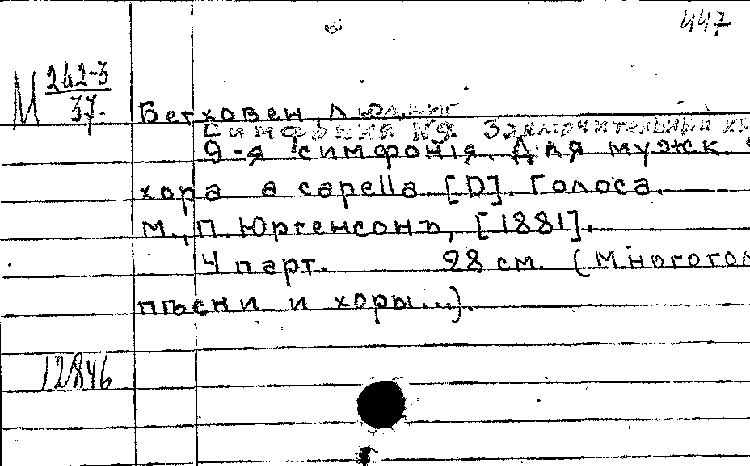 447
М 242-3
37.
Бетховен, Людвиг
Симфония №9. Заключительный
9-я симфонія. Для мужск.
хора a capella [D]. Голоса.
М., П. Юргенсонъ, [1881].
4 парт. 28 см. (Многогол
пѣсни и хоры...).
12846